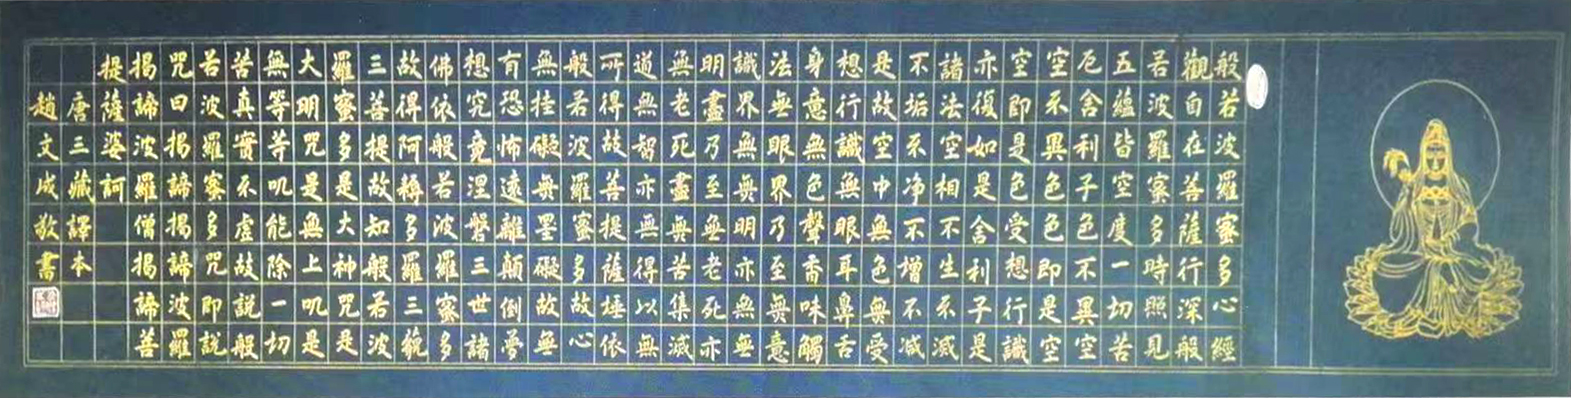 般若波羅蜜多心經
觀自在菩薩行深般
若波羅蜜多時照見
五蘊皆空度一切苦
厄舍利子色不異空
空不異色色即是空
空即是色受想行識
亦復如是舍利子是
諸法空相不生不滅
不垢不淨不增不減
是故空中無色無受
想行識無眼耳鼻舌
身意無色聲香味觸
法無眼界乃至無意
識界無無明亦無無
明盡乃至無老死亦
無老死盡無苦集滅
道無智亦無得以無
所得故菩提薩埵依
般若波羅蜜多故心
無挂礙無罣礙故無
有恐怖遠離顛倒夢
想究竟涅槃三世諸
佛依般若波羅蜜多
故得阿耨多羅三藐
三菩提故知般若波
羅蜜多是大神咒是
大明咒是無上呪是
無等等呪能除一切
苦真實不虛故說般
若波羅蜜多咒即說
咒曰揭諦揭諦波羅
揭諦波羅僧揭諦菩
提薩婆訶
唐三藏譯本
趙文成敬書